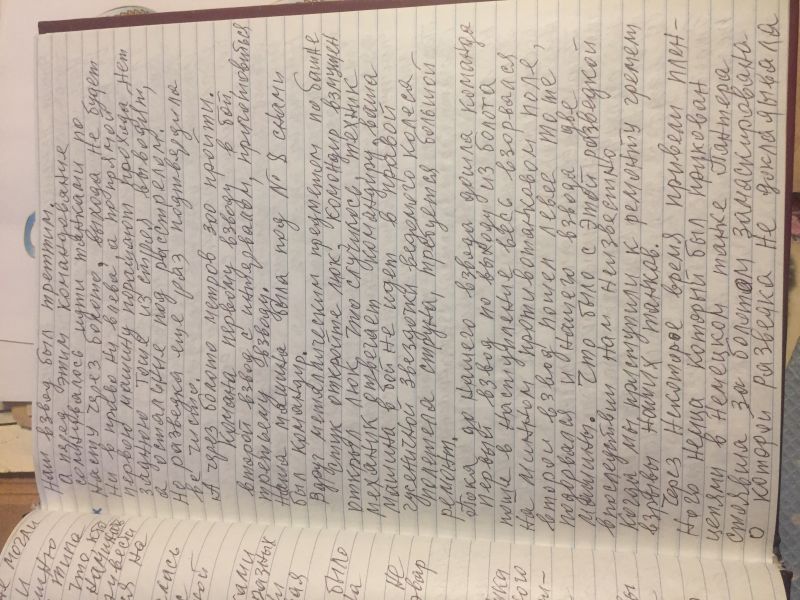 не могли
и
типа
на
лась
ой
разных
было
не
ного
Наш взвод был третьим,
А перед этим командование
советовалось идти танками по
мосту через болото, выхода не будет
Ни в право ни влева а попрямой
первую машину поражают прохода нет
заднюю тоже из строя выводим,
а остальные под расстрелом.
Но разведка еще раз подтвердила
всё чисто.
А через болото метров 300 пройти.
Команда первому взводу в бой,
второй взвод с интервалом, приготовиться
третьему взводу.
Наша машина была под № 8 с нами
был командир.
Вдруг металлическим предметом по башне
стук откройте люк, командир возмущен
открыл люк что случилось, техник
механик отвечает командиру, ваша
машина в бой не идет в правой
гусеничной звездочки ведомого колеса
требуется большой
ремонт.
Пока до нашего взвода дошла команда
Первый взвод по выходу из болота
пошел в наступление весь взорвался
На минном противотанковом поле,
второй взвод пошел левее тоже
подорвался и нашего взвода две
машины. Что было с этой разведкой
впоследствии нам неизвестно
когда мы приступили к ремонту гремели
взрывы наших танков.
Через некоторое время привели плен-
ного немца который был прикован
цепями в немецком танке Пантера
стоявшая за болотом замаскирована
о которой разведка не докладывала